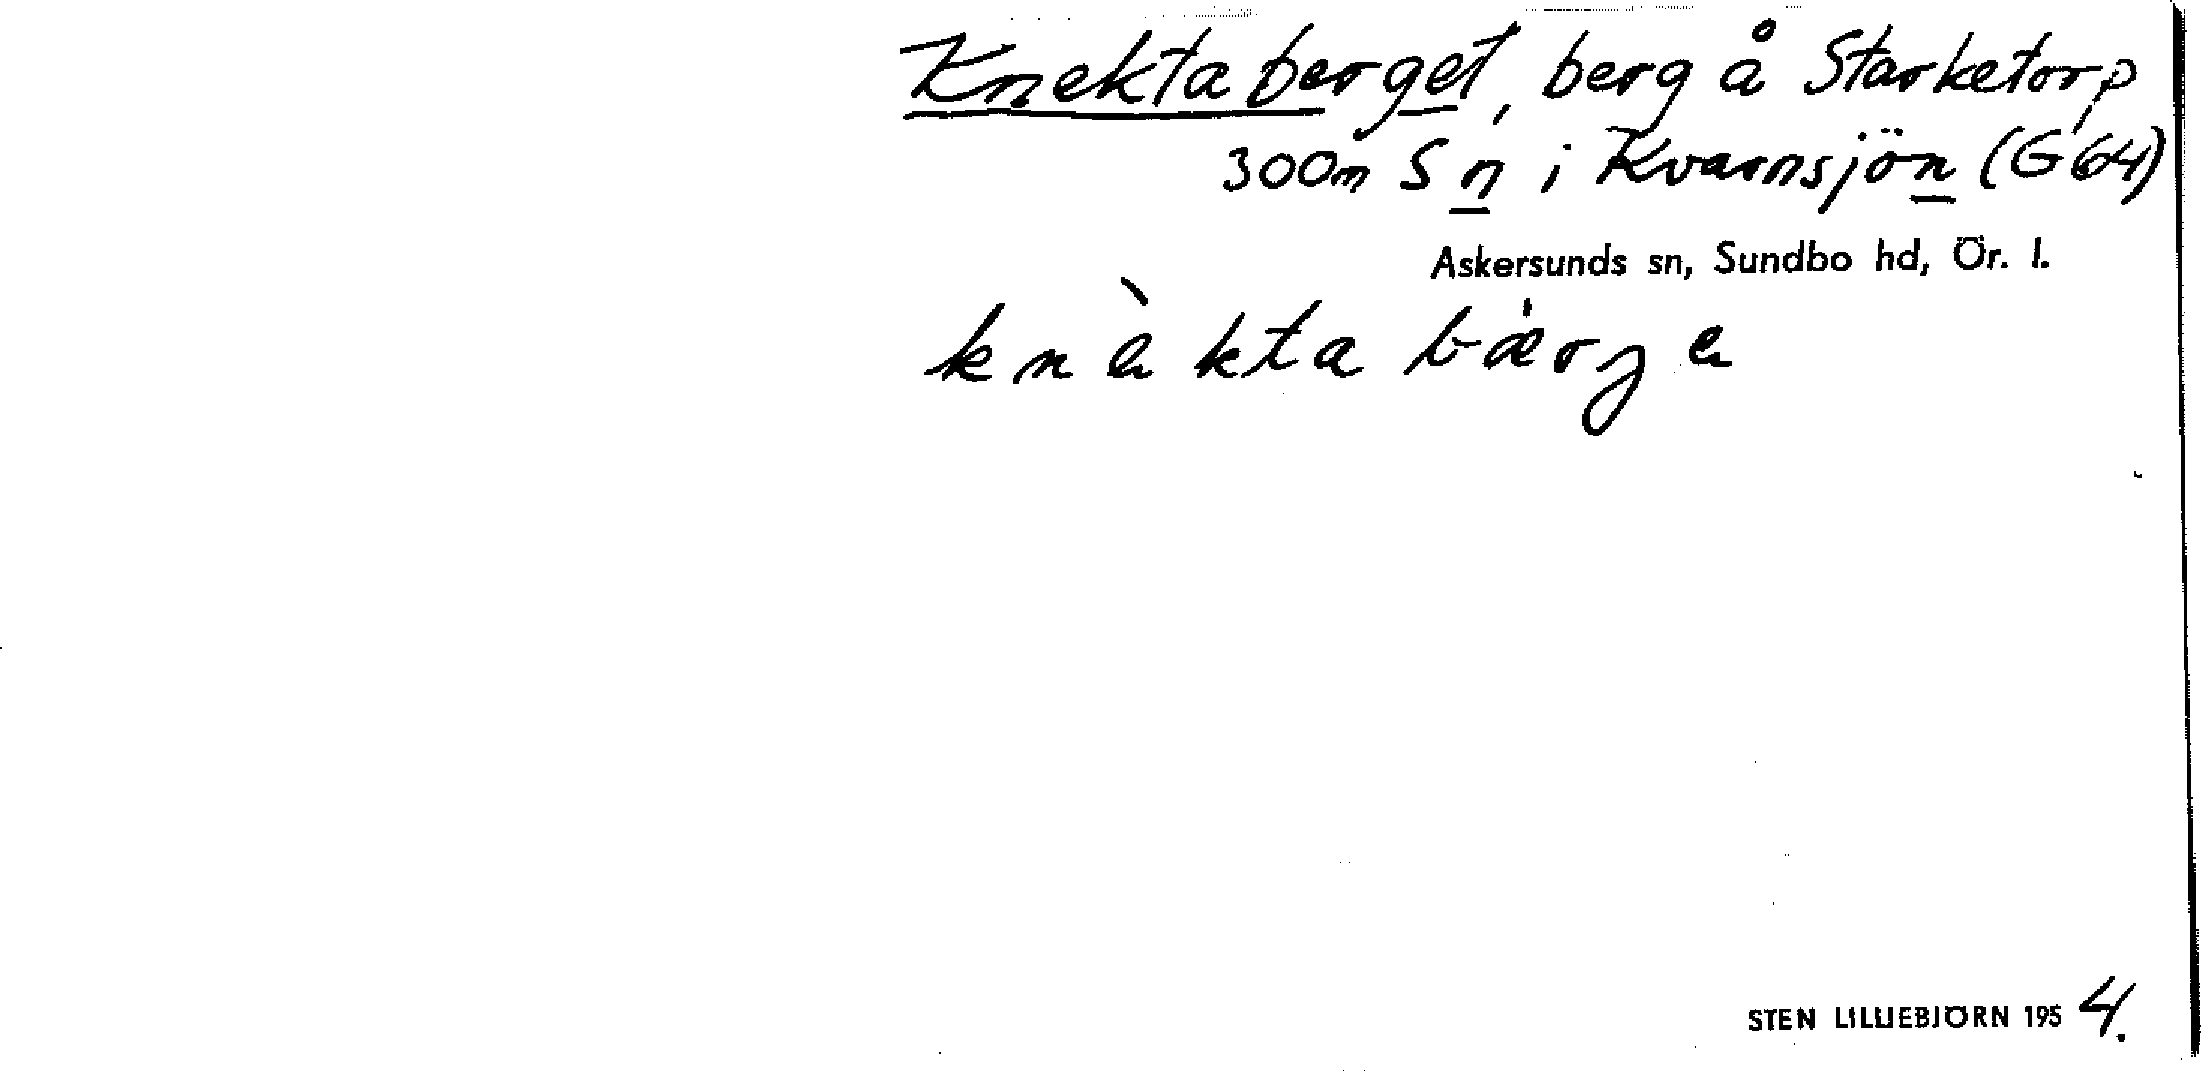 Knektaberget, berg å Starketorp
300m S n i Kvarnsjön (G64)
Askersunds sn, Sundbo hd, Ör. l.
knèktabærje
STEN LILLIEBJÖRN 1954.